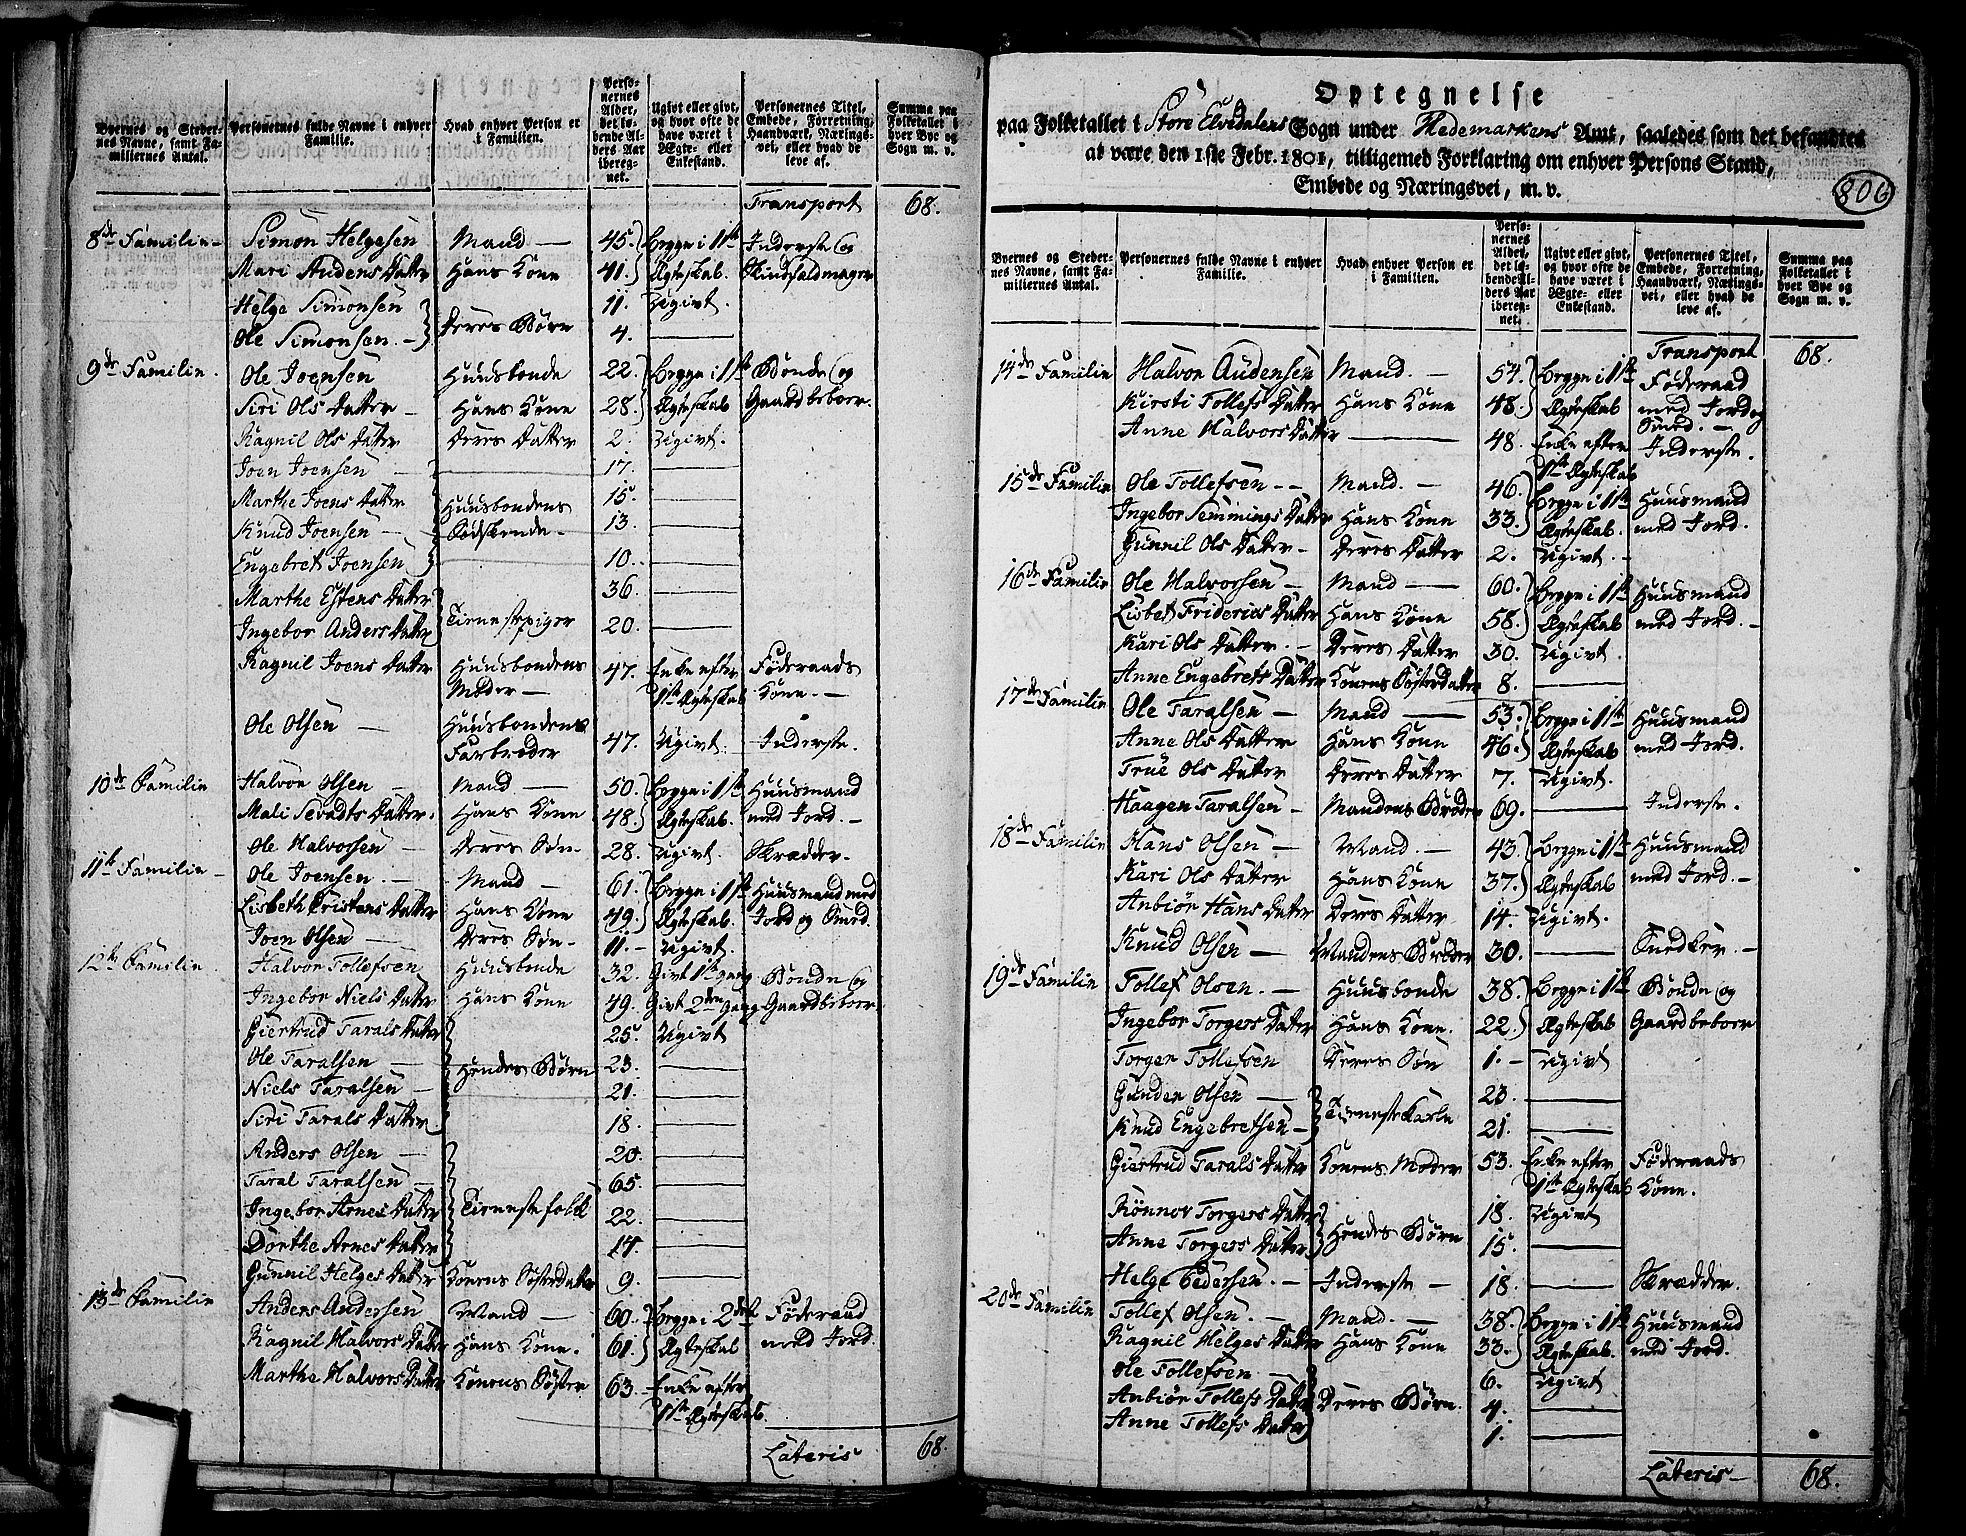 Byernes og Steder-
nes Navne, samt Fa-
miliernes Antal.
Personernes fulde Navne i enhver
Familie.
Hvad enhver Person er
i Familien.
Perso-
nernes
Alder,
det le-
bende Al-
ders Aar
ibereg-
net.
Ugivt eller givt,
og hvor ofte de
have været i
Ægte- eller
Enkestand.
Personernes Titel,
Embede, Forretning,
Haandværk, Nærings-
vei, eller hvad de
leve af.
Summa paa
Folketallet i
hver Bye og
Sogn m. v.
Transport 68.
8de Familie - Simon Helgesen Mand - 45. Begge i 1ste Inderste og
Mari Audens Datter Hans Kone 41. Ægteskab. Skindfældmager
Helge Simonsen 11. Ugivt.
Deres Børn
Ole Simonsen. - 4. -
9de Familie. Ole Joensen Huusbonde 22. Begge i 1ste Bonde og
Siri Ols Datter - Hans Kone 28. Ægteskab Gaardbeboer.
Ragnil Ols Datter Deres Datter 2. Ugivt.
Joen Joensen - 17. -
Marthe Joens Datter Huusbondens 15. -
Knud Joensen - Sødskende - 13. -
Engebret Joensen 10. -
Marthe Estens Datter 36. -
Tienestepiger
Ingebor Anders Datter 20. -
Ragnil Joens Datter Huusbondens 47. Enke efter Føderaads
Moder - 1ste Ægteskab Kone. -
Ole Olsen - Huusbondens
Farbroder 47. Ugivt. - Inderste.
10de Familie Halvor Olsen - Mand - 50. Begge i 1ste Huusmand
Mali Sevadts Datter. Hans Kone 48. Ægteskab. med Jord. -
Ole Halvorsen - Deres Søn - 28. Ugivt. Skrædder.
11te Familie - Ole Joensen. - Mand - 61. Begge i 1ste Huusmand med
Lisbeth Cristens Datter Hans Kone 49. Ægteskab. Jord og Smed.
Joen Olsen - Deres Søn - 11. - Ugivt.
12te Familie. Halvor Tollefsen Huusbonde 32. Givt 1ste gang Bonde og
Ingebor Niels Datter Hans Kone 49. Givt 2den Gang Gaardbeboer
Giertrud Tarals Datter 25. Ugivt
Ole Taralsen - Hendes Børn 23. -
Niels Taralsen - 21. -
Siri Tarals Datter. 18. -
Anders Olsen - 20. -
Taral Taralsen - 65. -
Ingebor Arnes Datter Tienestefolk 22. -
Dorthe Arnes Datter 17. -
Gunnil Helges Datter Konens Søsterdatter 9. -
13de Familie Anders Andersen Mand - 60. Begge i 2det Føderaad
Ragnil Halvors Datter Hans Kone. 61. Ægteskab med Jord.
Marthe Halvors Datter Konens Søster 63. Enke efter
1ste Ægteskab.
Lateris 68.
Optegnelse
paa Folketallet i Store Elvedalens Sogn under Hedemarkens Amt, saaledes som det befandtes
at være den 1ste Febr. 1801, tilligemed Forklaring om enhver Persons Stand,
Embede og Næringsvei, m. v.
806
Byernes og Steder-
nes Navne, samt Fa-
miliernes Antal.
Personernes fulde Navne i enhver
Familie.
Hvad enhver Person er
i Familien.
Perso-
nernes
Alder,
det le-
bende Al-
ders Aar
ibereg-
net.
Ugivt eller givt,
og hvor ofte de
have været i
Ægte- eller
Enkestand.
Personernes Titel,
Embede, Forretning,
Haandværk, Nærings-
vei, eller hvad de
leve af.
Summa paa
Folketallet i
hver Bye og
Sogn m. v.
Transport 68.
14de Familie Halvor Audensen Mand. - 54. Begge i 1ste Føderaad
Kirsti Tollefs Datter Hans Kone 48. Ægteskab med Jord og
Smed. -
Anne Halvors Datter - 48. Enke efter Inderste.
1ste Ægteskab
15de Familie Ole Tollefsen - - Mand. - 46. Begge i 1ste Huusmand
Ingebor Semmings Datter Hans Kone 33. Ægteskab. med Jord.
Gunnil Ols Datter - Deres Datter 2. Ugivt. -
16de Familie Ole Halvorsen - Mand - 60. Begge i 1ste Huusmand
Lisbet Friderics Datter Hans Kone 58. Ægteskab med Jord. -
Kari Ols Datter. - Deres Datter 30. Ugivt.
Anne Engebrets Datter Konens Søsterdatter 8. -
17de Familie Ole Taralsen - Mand - 53. Begge i 1ste Huusmand
Anne Ols Datter Hans Kone 46. Ægteskab med Jord.
True Ols Datter Deres Datter 7. Ugivt.
Haagen Taralsen - Mandens Broder 69. - Inderste.
18de Familie Hans Olsen - Mand. - 43. Begge i 1ste Huusmand
Kari Ols Datter Hans Kone 37. Ægteskab med Jord. -
Anbiør Hans Datter Deres Datter 14. Ugivt.
Knud Olsen - Mandens Broder 30. - Snedker. -
19de Familie Tollef Olsen. - Huusbonde 38. Begge i 1ste Bonde og
Ingebor Torgers Datter Hans Kone. 22. Ægteskab Gaardbeboer
Torger Tollefsen Deres Søn 1. - Ugivt
Gunder Olsen - 23. -
Tieneste Karle
Knud Engebretsen - 21. -
Giertrud Tarals Datter Konens Moder 53. Enke efter Føderaads
1ste Ægteskab Kone.
Rønnov Torgers Datter 18. Ugivt
Hendes Børn
Anne Torgers Datter 15. -
Helge Pedersen. - Inderste - 18. - Skrædder.
20de Familie Tollef Olsen. - Mand. - 38. Begge i 1ste Huusmand
Ragnil Helges Datter Hans Kone 33. Ægteskab. med Jord.
Ole Tollefsen - 6. Ugivt
Anbiør Tollefs Datter Deres Børn. 4. -
Anne Tollefs Datter 1. -
Lateris - 68.